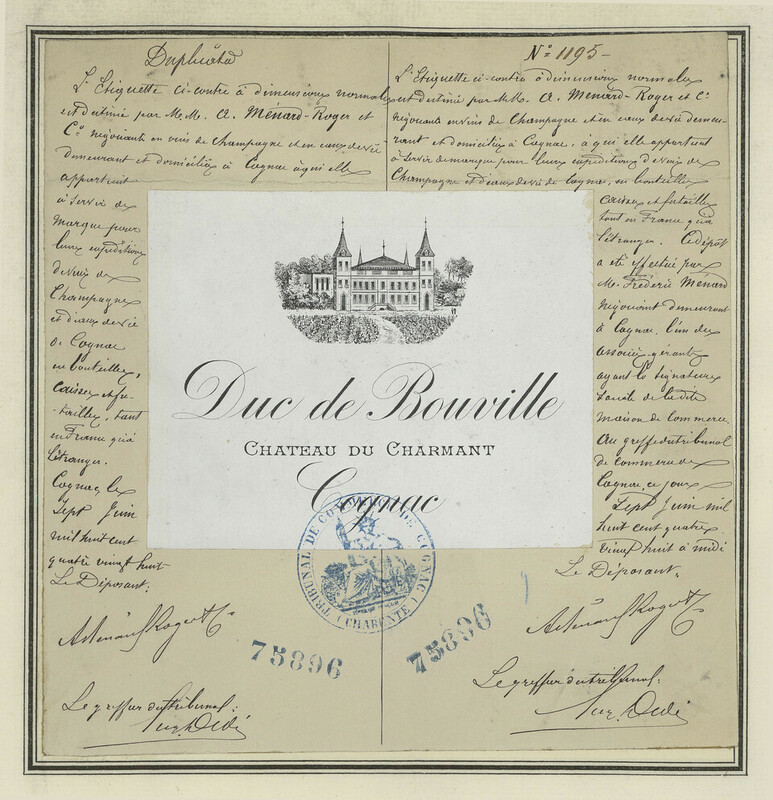 Duplicata
L'Etiquette ci-contre à dimensions normales
est destiné par M.M. A. Ménard-Roger et
Cº négociants en vins de Champagne et en eaux de vie
demeurant et domiciliés à Cognac à qui elle
appartient
à servir de
marque pour
leurs expéditions
de vins de
Champagne
et d'eaux de vie
de Cognac
en bouteilles,
caisses et fu-
tailles, tant
en France qu'à
l'étranger.
Cognac, le
Sept Juin
mil huit cent
quatre vingt huit
Le Déposant:
A Ménard Roger & Cº
Le greffier du tribunal:
Nº 1195-
L'Etiquette ci-contre à dimensions normales
est destiné par M.M. A. Ménard-Roger et Cº
négociants en vins de Champagne et en eaux de vie demeu-
rant et domiciliés à Cognac, à qui elle appartient
à servir de marque pour leurs expéditions de vins de
Champagne et d'eaux de vie de Cognac, en bouteilles
caisses et futailles
tant en France qu'à
l'étranger. Ce dépôt
a été effectué par
M. Frédéric Ménard
négociant demeurant
à Cognac, l'un des
associés-gérants
ayant la signature
sociale de la dite
maison de commerce
au greffe du tribunal
de commerce de
Cognac, ce jour
Sept Juin mil
huit cent quatre
vingt huit à midi
Le Déposant,
A Ménard Roger & Cº
Le greffier du tribunal:
Duc de Bouville
CHATEAU DU CHARMANT
Cognac
TRIBUNAL DE COMMERCE DE COGNAC
(CHARENTE)
75896
75896